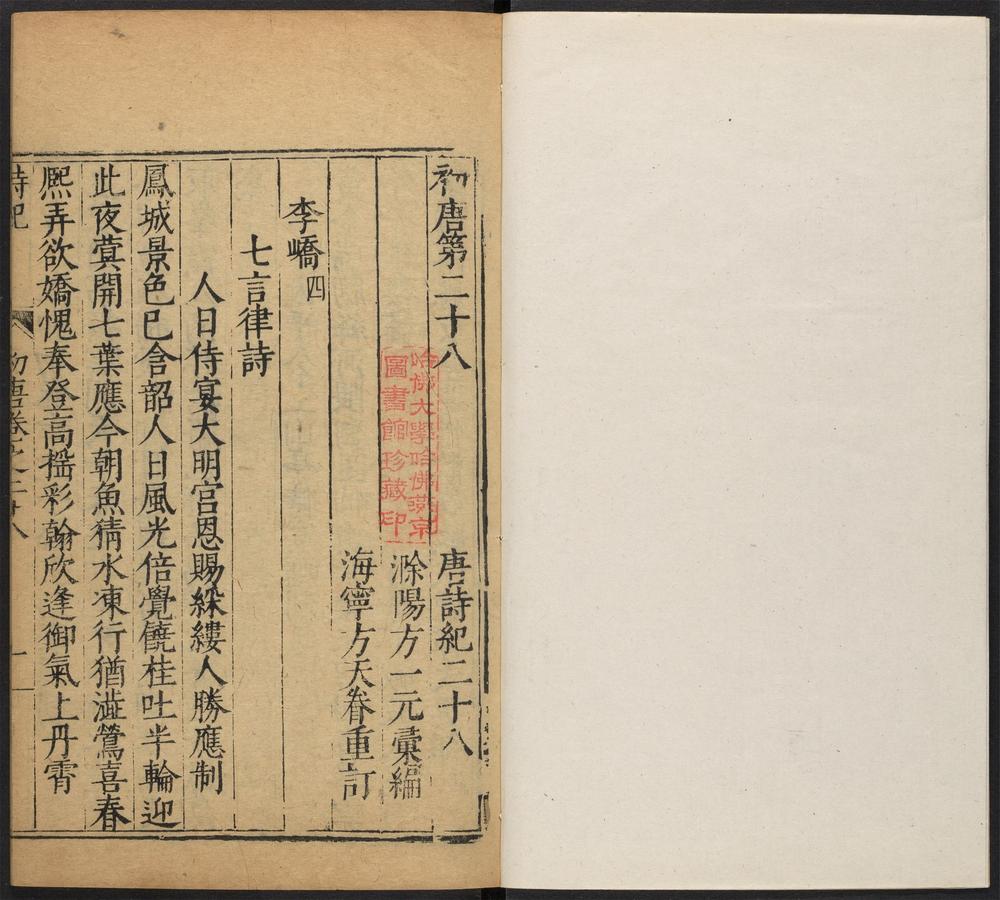 初唐第二十八　唐詩紀二十八
滁陽方一元彙編
海寧方天眷重訂
李嶠四
七言律詩
人日侍宴大明宮恩賜綵縷人勝應制
鳳城景色已含韶人日風光倍覺饒桂吐半輪迎
此夜蓂開七葉應今朝魚猜水凍行猶澁鶯喜春
熈弄欲嬌愧奉登高搖彩翰欣逢御氣上丹霄
詩紀　初唐卷之二十八　一
哈佛大學哈佛燕京
圖書館珍藏印